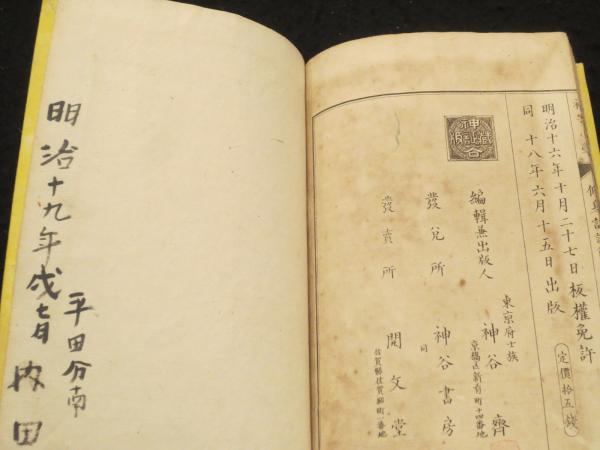 明治十六年十月二十七日板權免許
同 十八年六月十五日出版
定價拾五錢
編輯兼出版人
東京府士族
神谷 齊
京橋區新肴町十四番地
發兌所
神谷書房
同
發賣所
開文堂
佐賀縣佐賀
町一番地
明治十九年戌七月
平田分南
内田